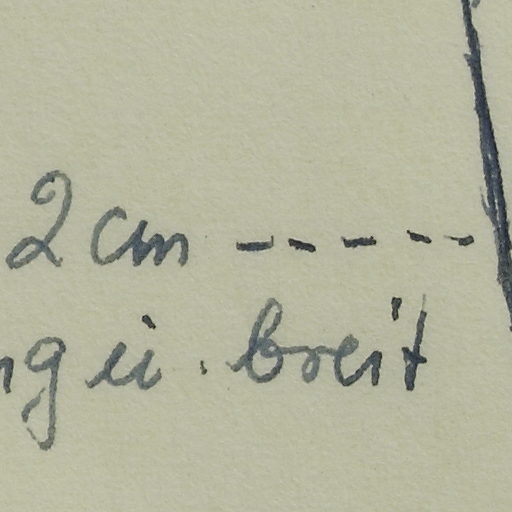 2 cm -----
ng u. breit